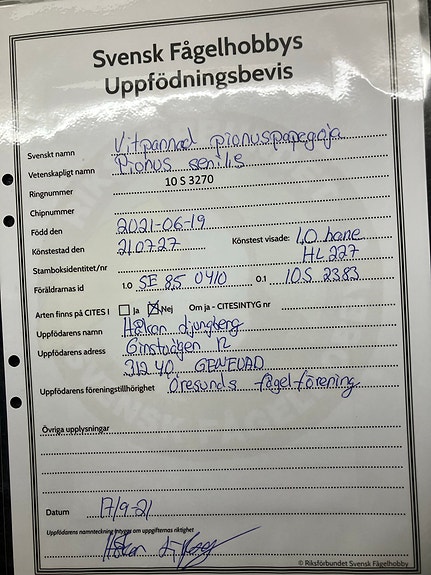 Svensk Fågelhobbys
Uppfödningsbevis
Svenskt namn Vitpannad pionuspapegoja
Vetenskapligt namn Pionus senilis
Ringnummer 10 S 3270
Chipnummer
Född den 2021-06-19
Könstestad den 210727 Könstest visade: 1,0 hane
Stamboksidentitet/nr HL 227
Föräldrarnas id 1.0 SE 85 0410 0.1 10S 2383
Arten finns på CITES I Ja Nej Om ja - CITESINTYG nr
Uppfödarens namn Håkan djungberg
Uppfödarens adress Ginstvägen 12
312 40 GENEVAD
Uppfödarens föreningstillhörighet Öresunds fågelförening
Övriga upplysningar
Datum 17/9-21
Uppfödarens namnteckning intygas om uppgifternas riktighet
Håkan
© Riksförbundet Svensk Fågelhobby